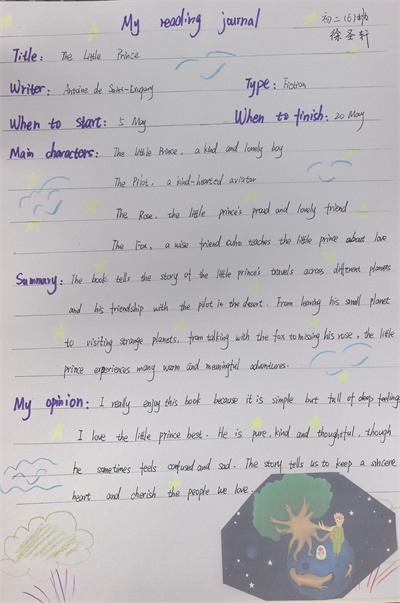 My reading journal
初二(6)班
徐圣轩
Title: The Little Prince
Writer: Antoine de Saint-Exupery
Type: Fiction
When to start: 5 May
When to finish: 20 May
Main characters: The Little Prince, a kind and lonely boy
The Pilot, a kind-hearted aviator
The Rose, the little prince's proud and lovely friend
The Fox, a wise friend who teaches the little prince about love
Summary: The book tells the story of the little prince's travels across different planets
and his friendship with the pilot in the desert. From leaving his small planet
to visiting strange planets, from talking with the fox to missing his rose, the little
prince experiences many warm and meaningful adventures.
My opinion: I really enjoy this book because it is simple but full of deep feelings
I love the little prince best. He is pure, kind and thoughtful, though
he sometimes feels confused and sad. The story tells us to keep a sincere
heart and cherish the people we love.